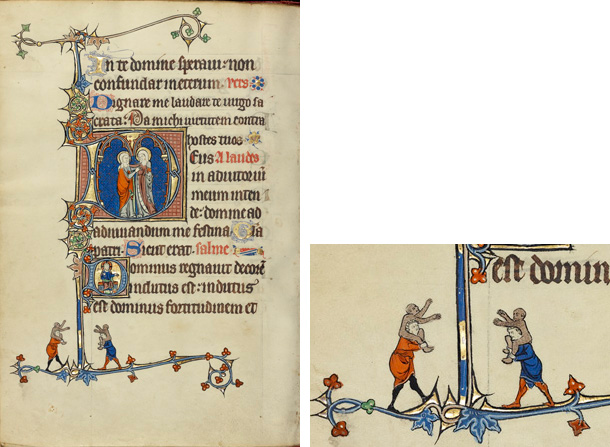 In te domine speravi: non
confundar ineternum. vers
Dignare me laudare te virgo sa
crata: Da michi virtutem contra
hostes tuos
Deus A laudes
in adiutoriū
meum inten
de: domine ad
adiuuandum me festina Glā
patri. Sicut erat. salme
Dominus regnauit decorē
indutus est: indutus
est dominus fortitudinem et
est domin